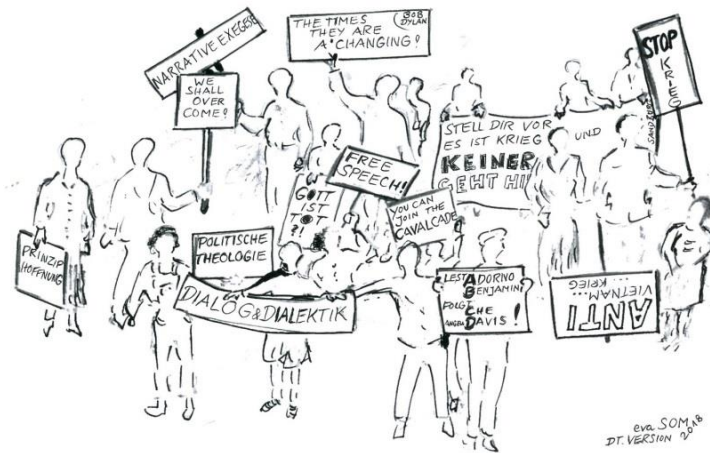 NARRATIVE EXEGESE
THE TIMES
THEY ARE
A'CHANGING!
(BOB
DYLAN
STOP
KRIEG
WE
SHALL
OVER
COME!
STELL DIR VOR
ES IST KRIEG
UND
KEINER
GEHT HI
FREE
SPEECH!
GOTT
IST
TOT
?!
YOU CAN
JOIN THE
CAVALCADE
PRINZIP
HOFFNUNG
POLITISCHE
THEOLOGIE
DIALOG&DIALEKTIK
LEST ADORNO
BENJAMIN
FOLGT CHE
ANGELA DAVIS!
ANTI
VIETNAM...
...KRIEG
eva SOM
DT. VERSION 2018